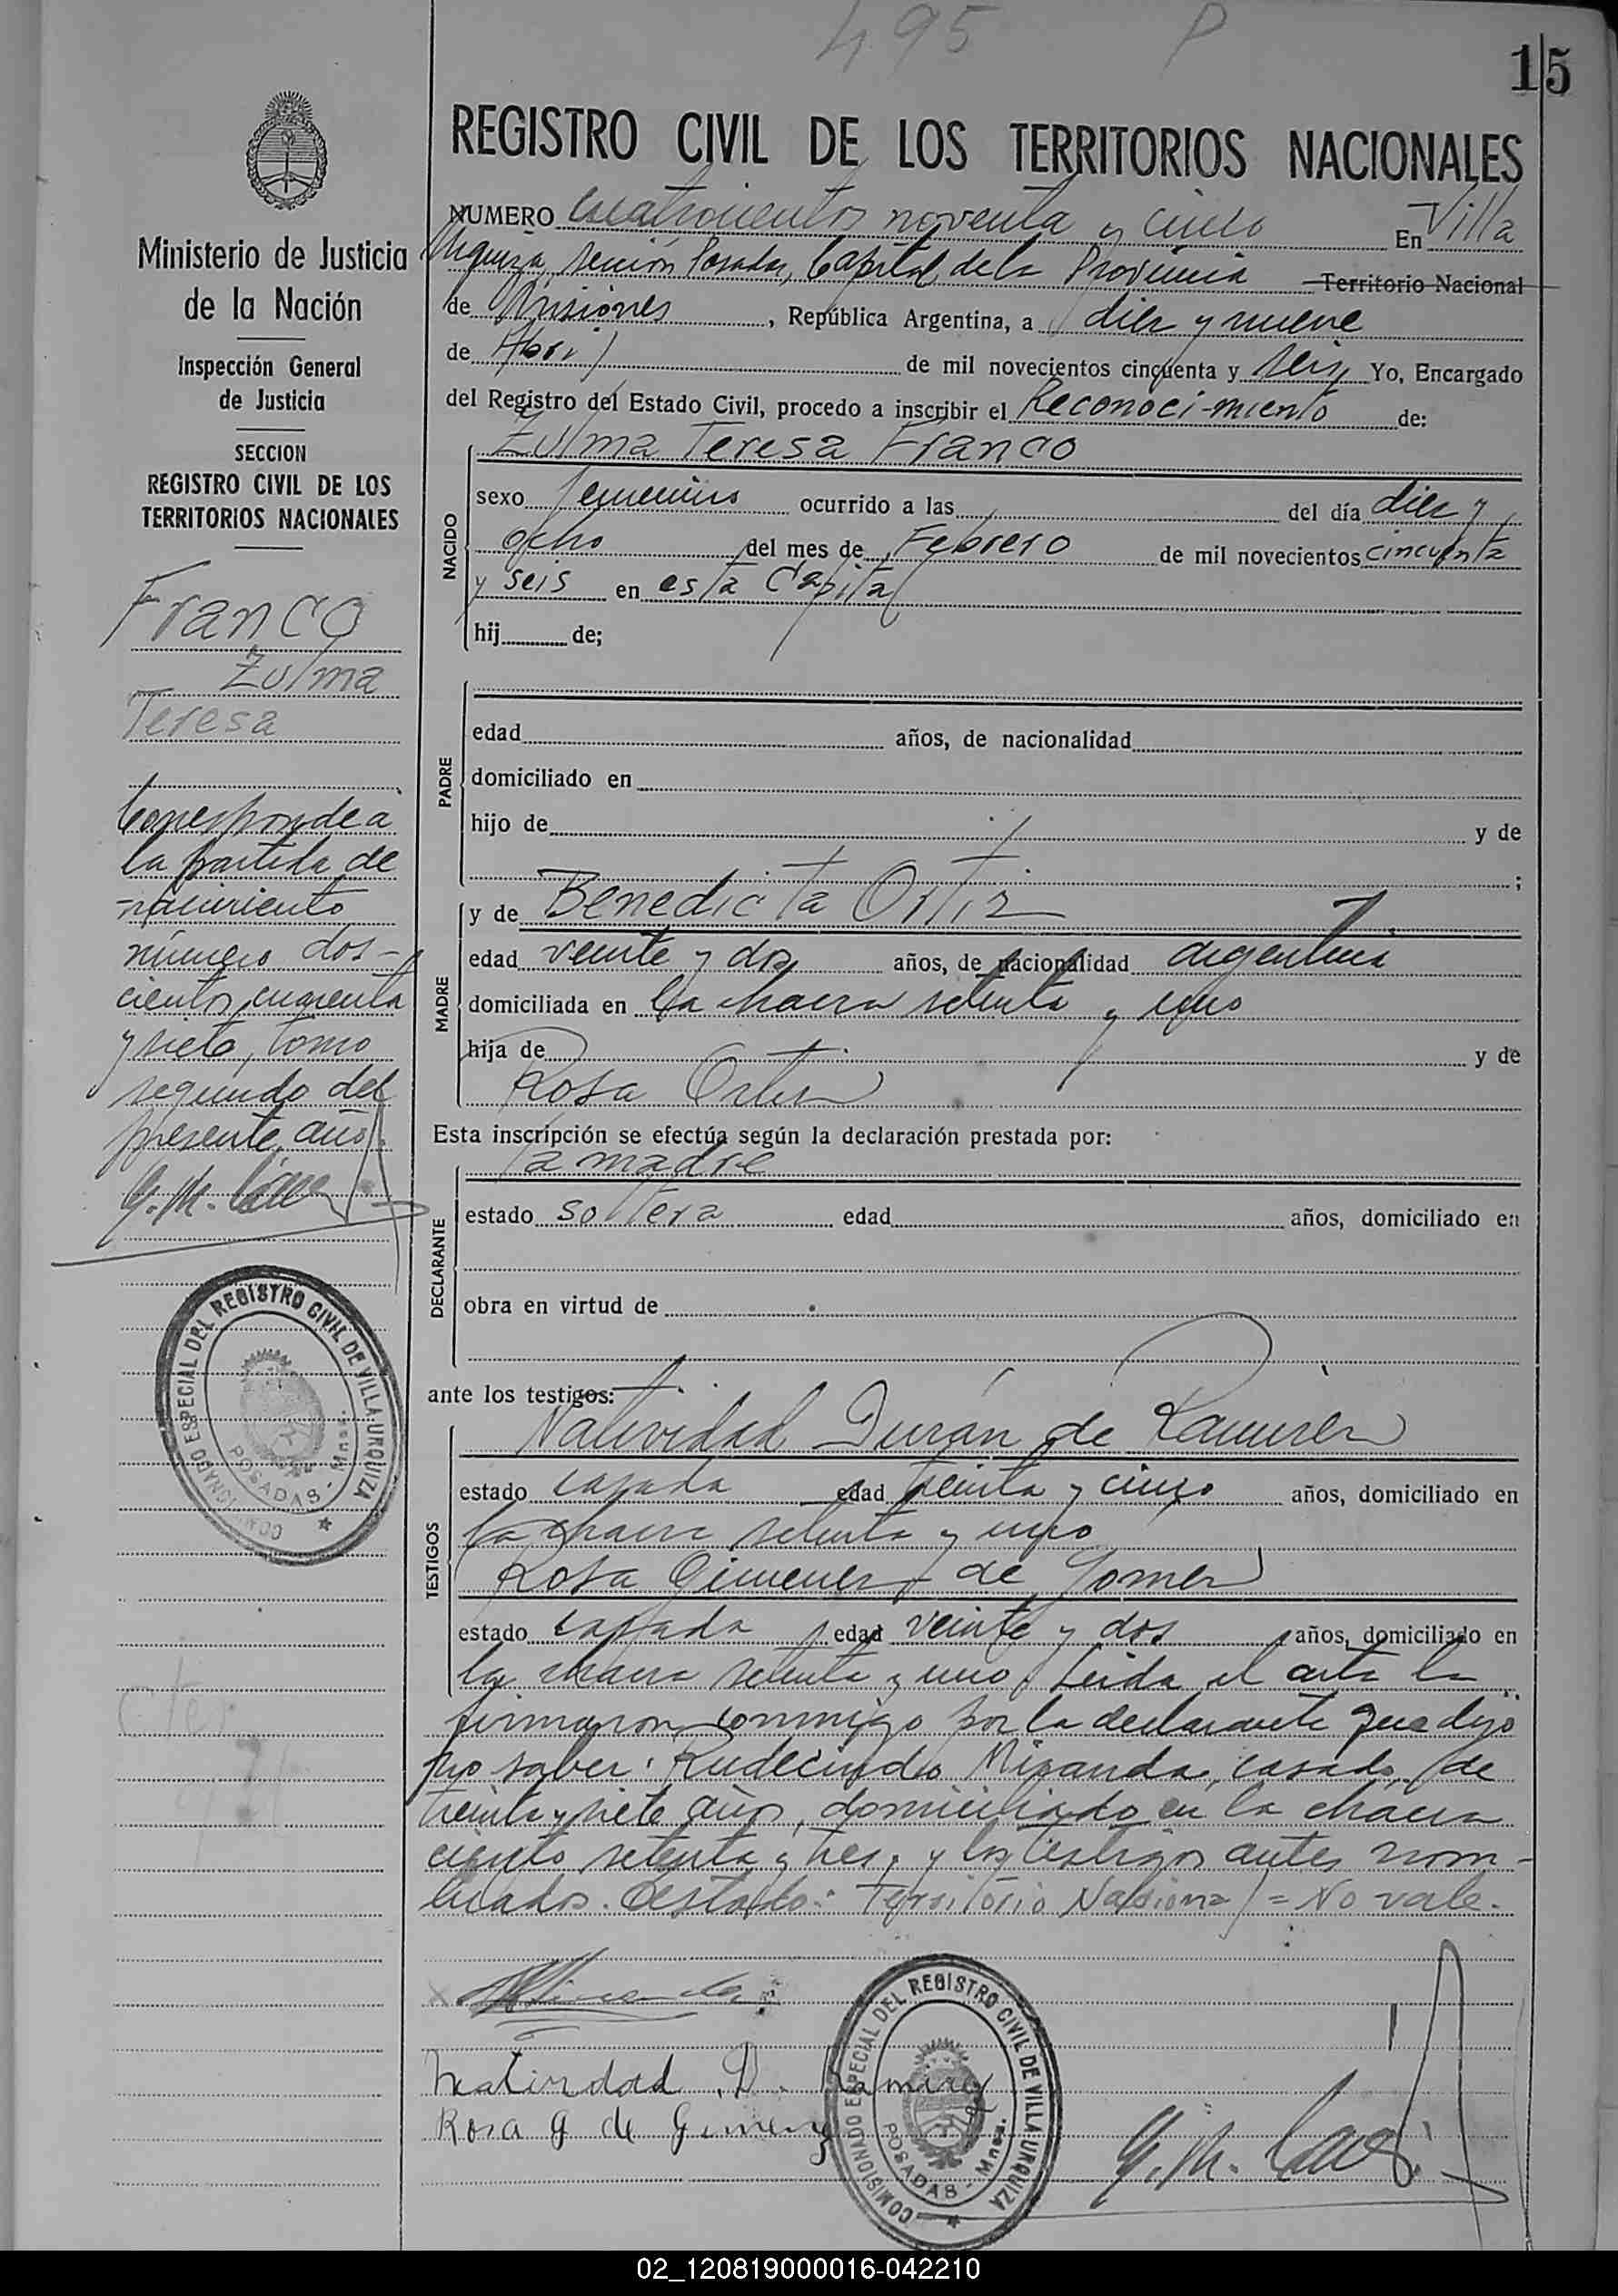 495 P
15
REGISTRO CIVIL DE LOS TERRITORIOS NACIONALES
Ministerio de Justicia
de la Nación
Inspección General
de Justicia
SECCION
REGISTRO CIVIL DE LOS
TERRITORIOS NACIONALES
Franco
Zulma
Teresa
Corresponde a
la partida de
nacimiento
número dos-
cientos cuarenta
y siete, tomo
segundo del
presente año.
COMISIONADO ESPECIAL DEL REGISTRO CIVIL DE VILLA URQUIZA
POSADAS - Mnes.
NUMERO cuatrocientos noventa y cinco En Villa
Urquiza, sección Posadas, Capital de la Provincia Territorio Nacional
de Misiones, República Argentina, a diez y nueve
de Abril de mil novecientos cincuenta y seis Yo, Encargado
del Registro del Estado Civil, procedo a inscribir el Reconocimiento de:
NACIDO
Zulma Teresa Franco
sexo femenino ocurrido a las del día diez y
ocho del mes de Febrero de mil novecientos cincuenta
y seis en esta Capital
hij de;
PADRE
edad años, de nacionalidad
domiciliado en
hijo de y de
;
MADRE
y de Benedicta Ortiz
edad veinte y dos años, de nacionalidad argentina
domiciliada en la chacra setenta y uno
hija de y de
Rosa Ortiz
Esta inscripción se efectúa según la declaración prestada por:
DECLARANTE
la madre
estado soltera edad años, domiciliado en
obra en virtud de
ante los testigos:
TESTIGOS
Natividad Durán de Ramirez
estado casada edad treinta y cinco años, domiciliado en
la chacra setenta y uno
Rosa Gimenez de Gomez
estado casada edad veinte y dos años, domiciliado en
la chacra setenta y uno. Leida el acta la
firmaron conmigo por la declarante que dijo
no saber: Rudecindo Miranda, casado, de
treinta y siete años, domiciliado en la chacra
ciento setenta y tres, y los testigos antes nom-
brados. Testado: Territorio Nacional = No vale.
Natividad D. Ramirez
Rosa G de Gimenez
COMISIONADO ESPECIAL DEL REGISTRO CIVIL DE VILLA URQUIZA
POSADAS - Mnes.
02_120819000016-042210